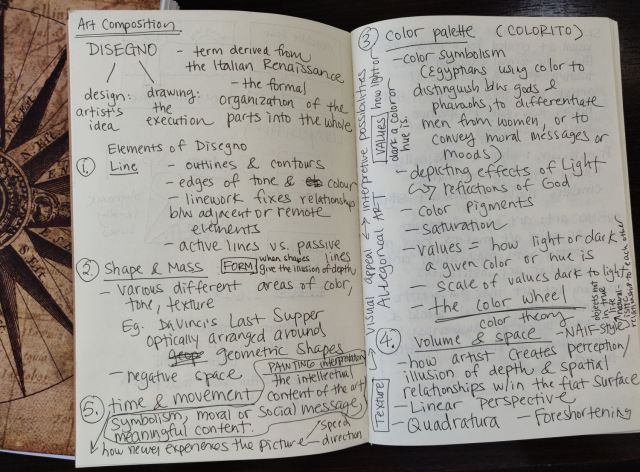 Art Composition
DISEGNO
- term derived from
the Italian Renaissance
- the formal
organization of the
parts into the whole
design:
artist's
idea
drawing:
the
execution
Elements of Disegno
1. Line
- outlines & contours
- edges of tone & colour
- linework fixes relationships
b/w adjacent or remote
elements
- active lines vs. passive
lines
2. Shape & Mass
FORM
when shapes
give the illusion of depth
- various different areas of color,
tone, texture
Eg. DaVinci's Last Supper
optically arranged around
geometric shapes
- negative space
PAINTING interpretation
the intellectual
content of the art
5. time & movement
Symbolism, moral or Social message,
meaningful content.
how viewer experiences the picture
speed
direction
3. Color palette (COLORITO)
- color symbolism
(Egyptians using color to
distinguish b/w gods &
pharaohs, to differentiate
men from women, or to
convey moral messages or
moods)
- depicting effects of Light
↳ reflctions of God
- Color pigments
- saturation
- values = how light or dark
a given color or hue is
- scale of values dark to light
- the color wheel
color theory
VALUES
how light or
dark a color or
hue is
visual appeal ↔ interpretive possibilities
Allegorical ART
4. volume & space
- NAIF-STYLE
objects not
in true
life
- how artist creates perception/
illusion of depth & spatial
relationships w/in the flat surface
- Linear perspective
- Quadratura
- Foreshortening
Texture